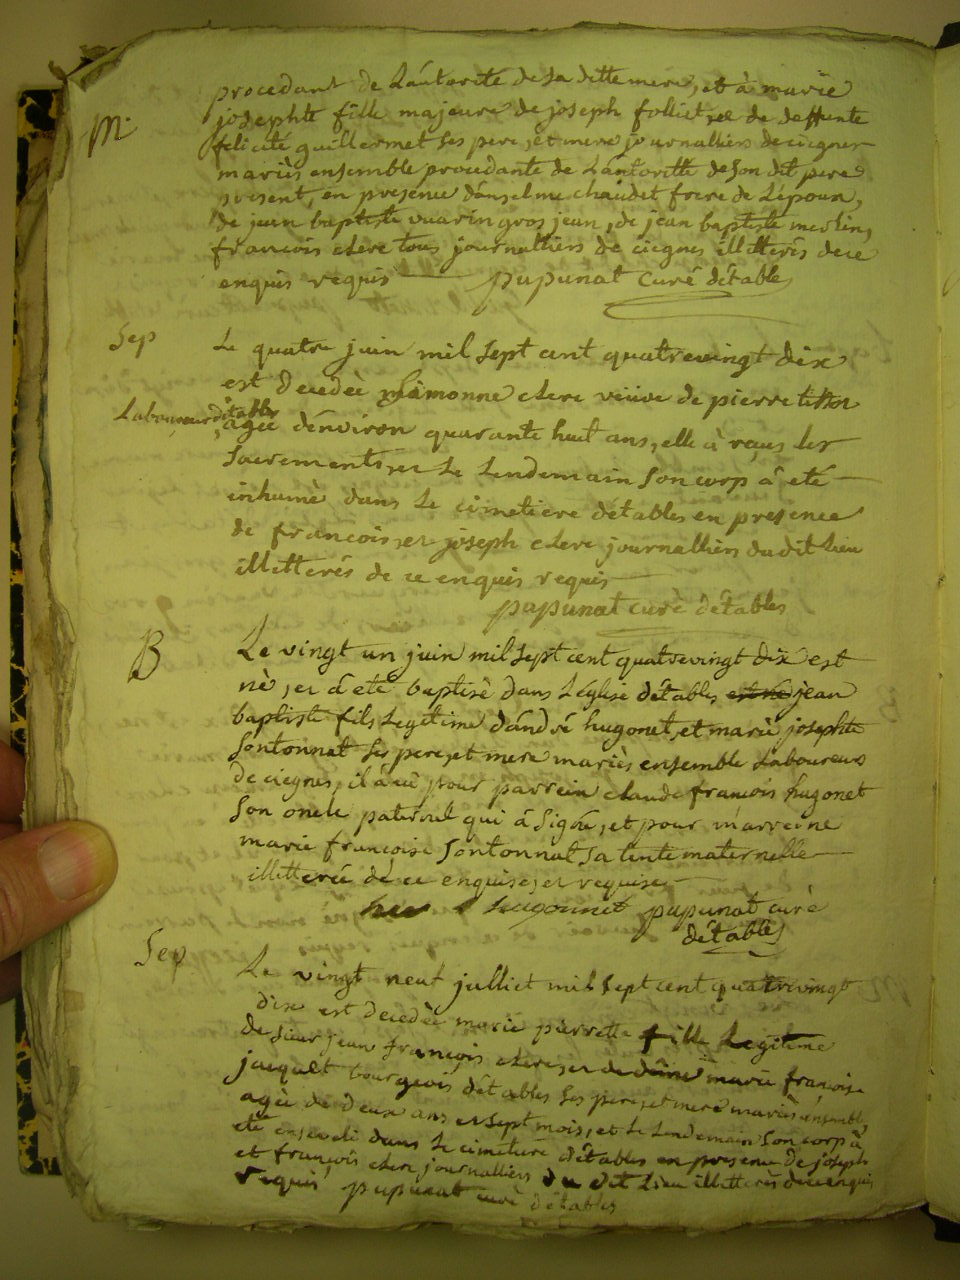 procedant de L'autorité de sa ditte mere, et à marie
M.
josephte fille majeure de joseph folliet, et de deffunte
felicité guillermet ses pere, et mere journalliers de ciegnes
mariés ensemble procedante de L'autoritté de son dit pere
present, en presence d'anselme chaudet frere de L'epoux,
de jean baptiste vuarin gros jean, de jean baptiste merlin,
francois clere tous journalliers de ciegnes illitterés de ce
enquis requis papunat curé d'étables
Sep Le quatre juin mil sept cent quatrevingt dix
est decedée clere veüve de pierre
Laboureur d'étables
, agée d'environ quarante huit ans, elle à reçus les
sacrements, et Le Lendemain son corp à eté
inhumé dans Le cimetiere d'étables en presence
de francois, et joseph clere journalliers du dit Lieu
illitterés de ce enquis requis
papunat curé d'étables
B Le vingt un juin mil sept cent quatrevingt dix est
né, et à eté baptisé dans L'église d'étables est né jean
baptiste fils Legitime d'andré hugonet, et marie josephte
sontonnat ses pere, et mere mariés ensemble Laboureurs
de ciegnes, il à eü pour parrein claude francois hugonet
son oncle paternel qui à signé, et pour marreine
marie francoise sontonnat sa tente maternelle
illitterée de ce enquise, et requise
hugonnet papunat curé
d'étables
Sep Le vingt neuf julliet mil sept cent quatrevingt
dix est decedée marie pierrette fille Legitime
de sieur jean françois clere, et de dame marie françoise
jacquet bourgeois d'étables ses pere, et mere mariés ensemble
agée de deux ans et sept mois, et Le Lendemain son corp à
eté enseveli dans Le cimetiere d'étables en presence de joseph
et françois clere journalliers du dit Lieu illitterés de ce enquis
requis papunat curé d'étables